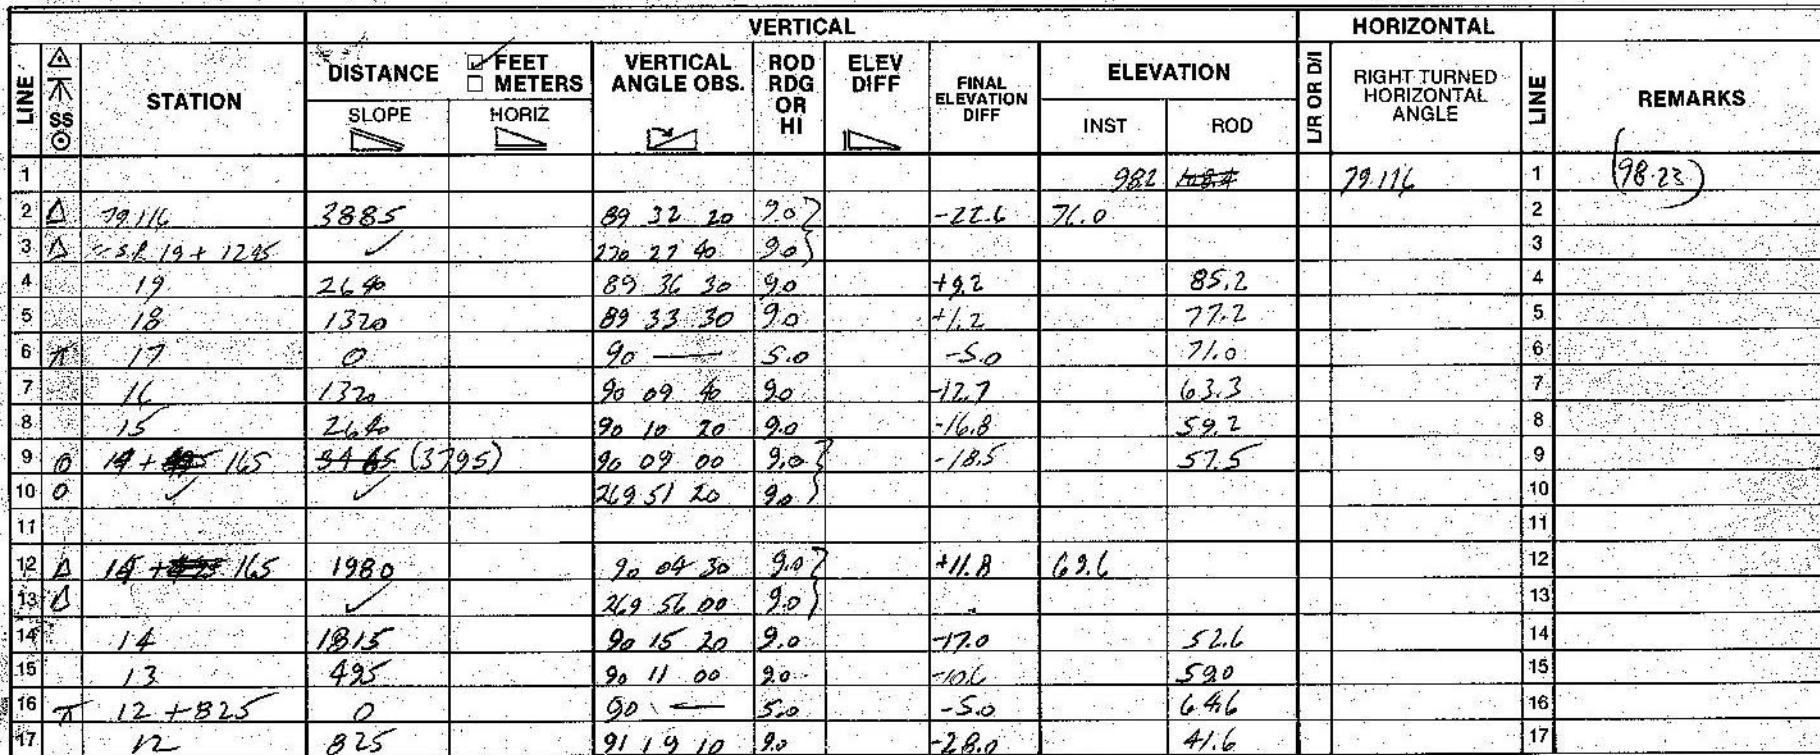 VERTICAL HORIZONTAL
LINE SS STATION DISTANCE FEET METERS SLOPE HORIZ VERTICAL ANGLE OBS. ROD RDG OR HI ELEV DIFF FINAL ELEVATION DIFF ELEVATION INST ROD L/R OR D/I RIGHT TURNED HORIZONTAL ANGLE LINE REMARKS
1 982 79.116 1 (98.23)
2 Δ 79.116 3885 89 32 20 9.0 -22.6 76.0 2
3 Δ S.R. 19 + 1245 ✓ 270 27 40 9.0 3
4 19 2640 89 36 30 9.0 +9.2 85.2 4
5 18 1320 89 33 30 9.0 +1.2 77.2 5
6 π 17 0 90 — 5.0 -5.0 71.0 6
7 16 1320 90 09 40 9.0 -12.7 63.3 7
8 15 2640 90 10 20 9.0 -16.8 59.2 8
9 ⊙ 14 + 165 3465 (3795) 90 09 00 9.0 -18.5 57.5 9
10 O ✓ ✓ 269 51 20 9.0 10
11 11
12 Δ 14 + 165 1980 90 04 30 9.0 +11.8 69.6 12
13 Δ ✓ 269 56 00 9.0 13
14 14 1815 90 15 20 9.0 -17.0 52.6 14
15 13 495 90 11 00 9.0 -10.6 59.0 15
16 π 12 + 825 0 90 — 5.0 -5.0 64.6 16
17 12 825 91 19 10 9.0 -28.0 41.6 17